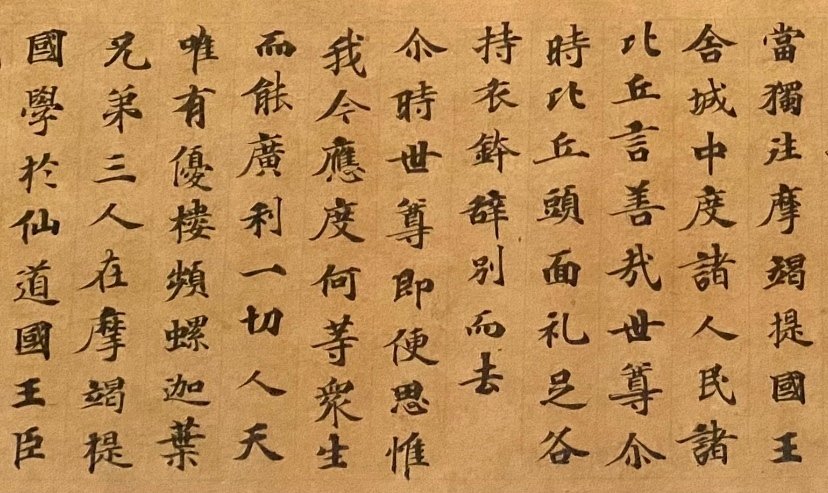 當獨往摩竭提國王
舍城中度諸人民諸
比丘言善哉世尊尒
時比丘頭面礼足各
持衣鉢辝別而去
尒時世尊即便思惟
我今應度何等眾生
而能廣利一切人天
唯有優樓頻螺迦葉
兄弟三人在摩竭提
國學於仙道國王臣